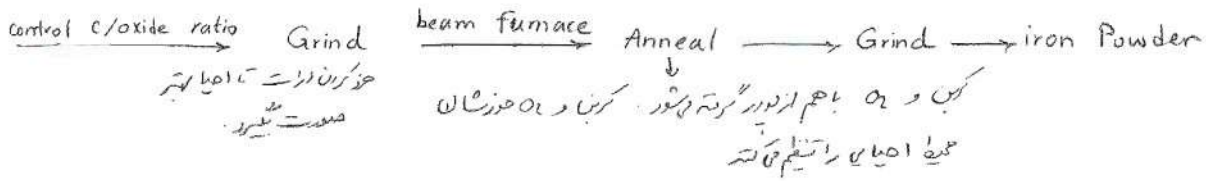 control c/oxide ratio → Grind beam furnace → Anneal → Grind → iron Powder
خرد کردن ذرات تا احیا بهتر
صورت بگیرد.
↓
کربن و O₂ با هم از پودر گرفته می‌شود. کربن و O₂ خودشان
محیط احیایی را تنظیم می‌کنند